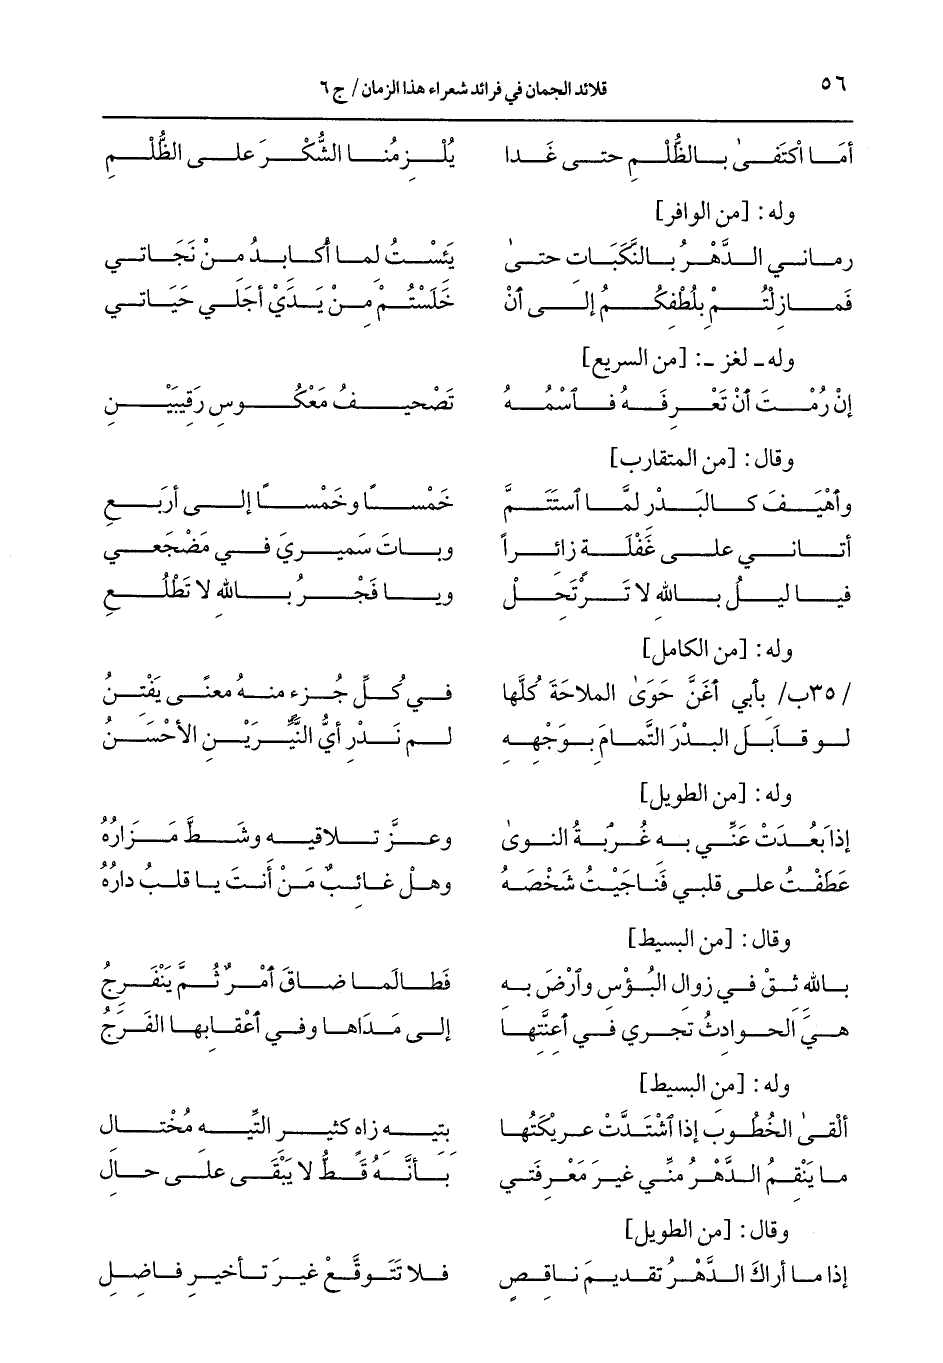 ٥٦ قلائد الجمان في فرائد شعراء هذا الزمان / ج ٦
أمَا اكتَفىٰ بالظُّلْمِ حتى غَدا يُلْزِمُنا الشُّكْرَ على الظُّلْمِ
وله: [من الوافر]
رماني الدَّهْرُ بالنَّكَبَاتِ حتىٰ يَئسْتُ لما أُكابدُ منْ نَجَاتي
فمازلْتُمْ بلُطْفِكُمُ إلى أنْ خَلَسْتُمْ مِنْ يَدَيْ أجَلي حَيَاتي
وله - لغز -: [من السريع]
إنْ رُمْتَ أنْ تَعْرِفَهُ فاسْمُهُ تَصْحيفُ مَعْكُوسِ رَقيبَيْنِ
وقال: [من المتقارب]
وأهْيَفَ كالبَدْرِ لمَّا اسْتَتَمَّ خَمْساً وخَمْساً إلى أربَعِ
أتاني على غَفْلَةٍ زائراً وباتَ سَميريَ في مَضْجَعي
فيا ليلُ باللهِ لا تَرْتَحِلْ ويا فَجْرُ باللهِ لا تَطْلُعِ
وله: [من الكامل]
/٣٥ب/ بأبي أغَنَّ حَوَىٰ الملاحَةَ كُلَّها في كُلِّ جُزءٍ منه معنًى يَفْتِنُ
لو قابَلَ البدْرَ التَّمامَ بوَجْهِهِ لم نَدْرِ أيُّ النَّيِّرَيْنِ الأحْسَنُ
وله: [من الطويل]
إذا بَعُدَتْ عَنِّي به غُرْبَةُ النوىٰ وعزَّ تلاقيه وشَطَّ مَزارُهُ
عَطَفْتُ على قلبي فَنَاجَيْتُ شَخْصَهُ وهلْ غائبٌ مَنْ أنتَ يا قلبُ دارُهُ
وقال: [من البسيط]
باللهِ ثقْ في زوالِ البُؤْسِ وارْضَ به فطالما ضاقَ أمْرٌ ثُمَّ يَنْفَرِجُ
هيَ الحوادثُ تجري في أعنَّتِها إلى مَدَاها وفي أعْقابِها الفَرَجُ
وله: [من البسيط]
ألْقىٰ الخُطُوبَ إذا اشْتَدَّتْ عريكَتُها بتيهِ زاهٍ كثيرِ التِّيهِ مُخْتالِ
ما يَنْقِمُ الدَّهْرُ منِّي غيرَ مَعْرِفَتي بأنَّهُ قَطُّ لا يَبْقَى على حالِ
وقال: [من الطويل]
إذا ما أراكَ الدَّهْرُ تقديمَ ناقصٍ فلا تَتَوقَّعْ غيرَ تأخيرِ فاضلِ